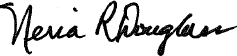 Neria R Douglass